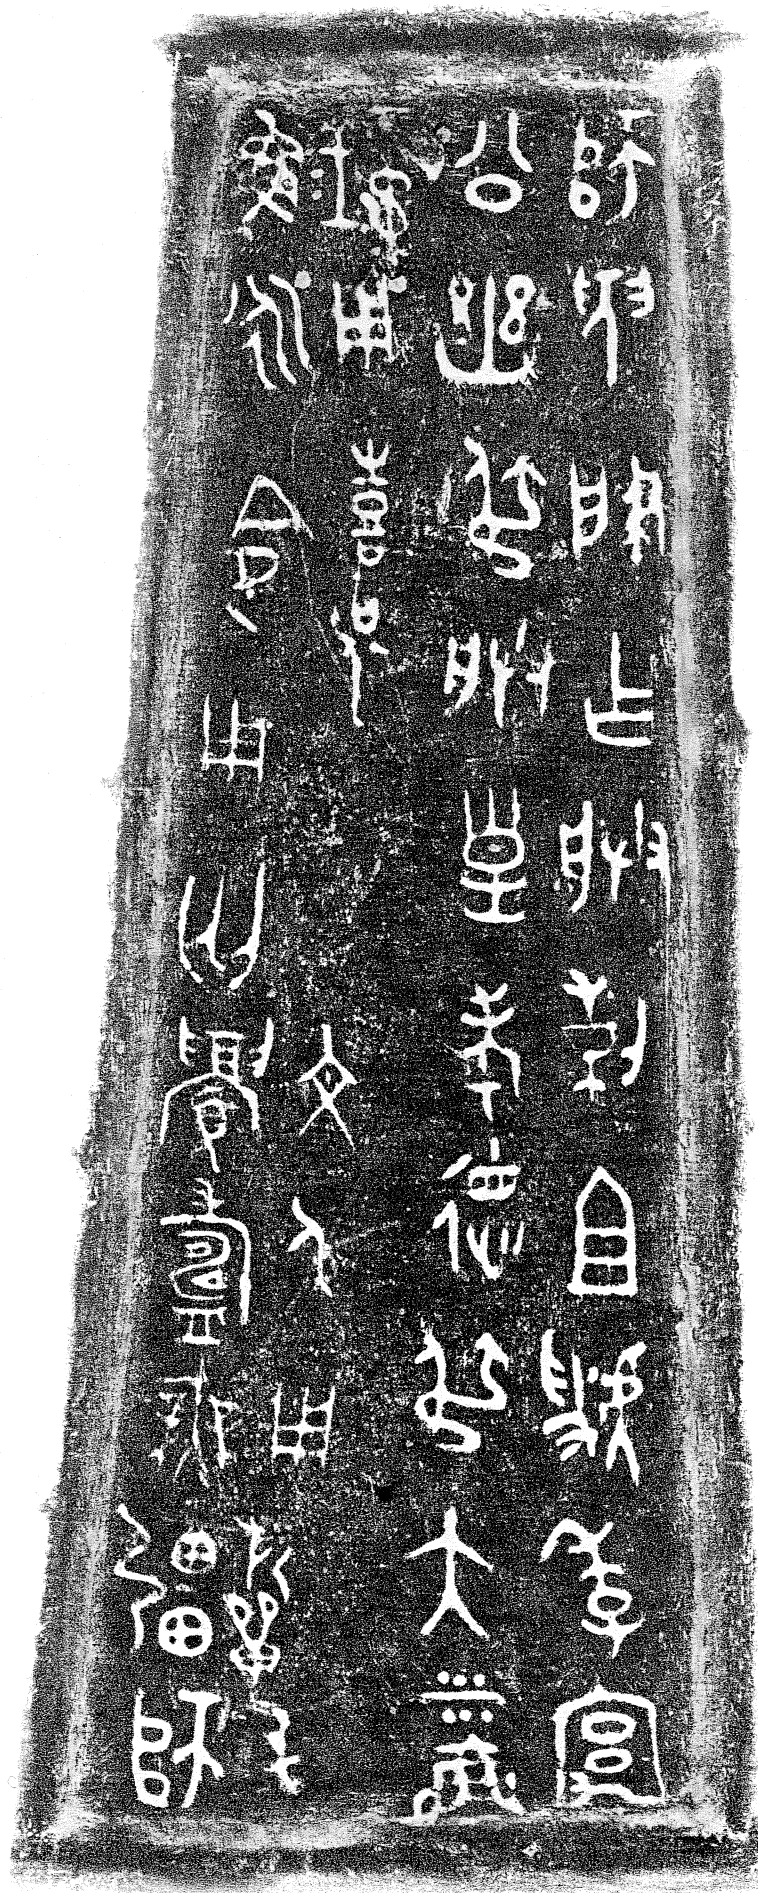 師肇乍朕剌且虢季
公幽弔朕皇考德弔大
鐘用喜侃文人用祈屯
魯永令用匄釁壽無疆師